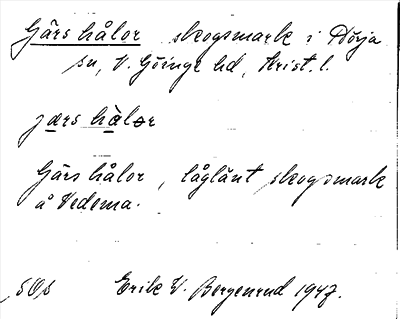 Gårs hålor skogsmark i Nörja
sn, V. Göinge hd, Krist. l.
jars hålər
Gårs hålor, låglänt skogsmark
å Vedema.
SOS Erik V. Bergenrud 1947.